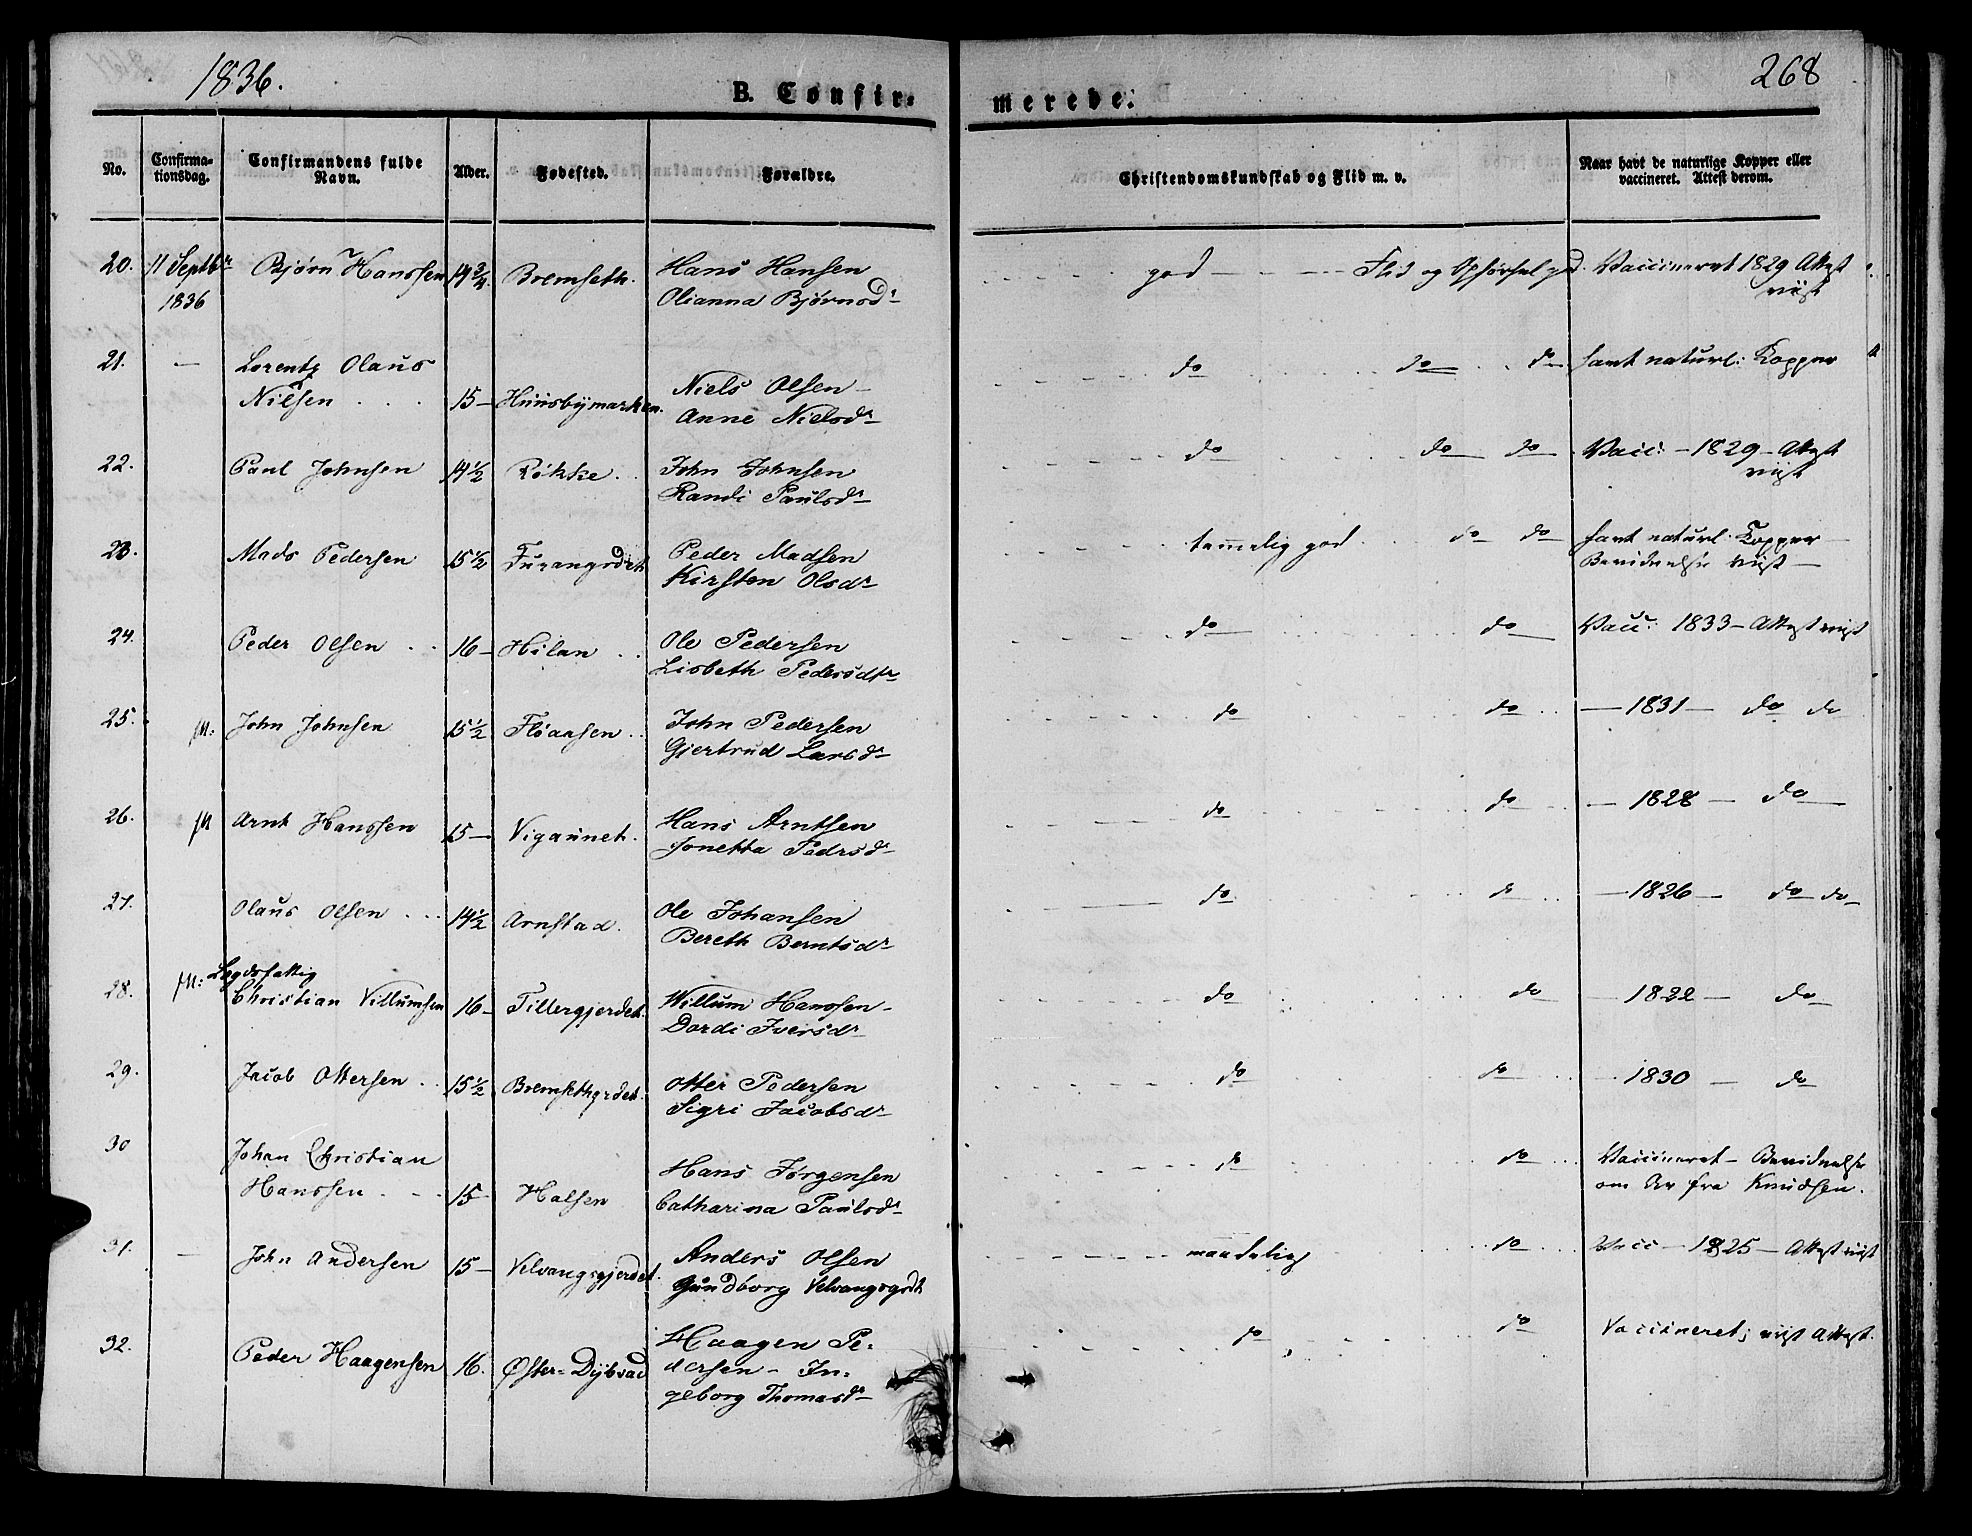 1836.
268
B. Confir-
merede.
No.
Confirma-
tionsdag.
Confirmandens fulde
Navn.
Alder.
Fødested.
Forældre.
Christendomskundskab og Flid m. v.
Naar havt de naturlige Kopper eller
vaccineret. Attest derom.
20. 11 Septbr Bjørn Hanssen 14 3/4 Bremseth. Hans Hansen god Flid og Opførsel god. Vaccineret 1829 Attest
1836 Olianna Bjørnsdr viist
21. — Lorentz Olaus do do do havt naturl: Kopper
Nilsen 15 — Huusbymarken. Niels Olsen —
Anne Nielsdr
22. Paul Johnsen 14 1/2 Røkke John Johnsen do do do Vacc: — 1829 — Attest
Randi Paulsdr viist
23. Mads Pedersen 15 1/2 Peder Madsen temmelig god do do havt naturl. Kopper
Kirsten Olsdr Bevidnelse viist —
24. Peder Olsen 16 — Hilan Ole Pedersen do do Vacc: 1833 — Attest viist
Lisbeth Pedersdtr
25. John Johnsen 15 1/2 Fløansen John Pedersen do do — 1831 — do do
Gjertrud Larsdr
26. Arnt Hanssen 15 — Vigaunet. Hans Arntsen do do — 1828 — do
Jonetta Pedrsdr
27. Olaus Olsen 14 1/2 Arnstad. Ole Johansen do do — 1826 — do do
Bereth Berntsdr
28. Lægdsfattig
Christian Villumsen 16 — Tillergjerdet. Willum Hanssen — do do — 1822 — do
Dordi Iversdr
29. Jacob Ottersen 15 1/2 Bremsethgrdet. Otter Pedersen do do 1830 — do
Sigri Jacobsdr
30 Johan Christian do do Vaccineret — Bevidnelse
Hanssen 15 Halsen Hans Jørgensen om Ar fra Knudsen.
Catharina Paulsdr
31. — John Andersen 15 — Velvangsgjerdet. Anders Olsen maadelig do Vacc — 1825 — Attest viist
Gundborg Velvangsgrdt
32. Peder Haagensen 16. Øster-Dybvad Haagen Pe- do do Vaccineret; viist Attest.
dersen — In-
geborg Thomasdr